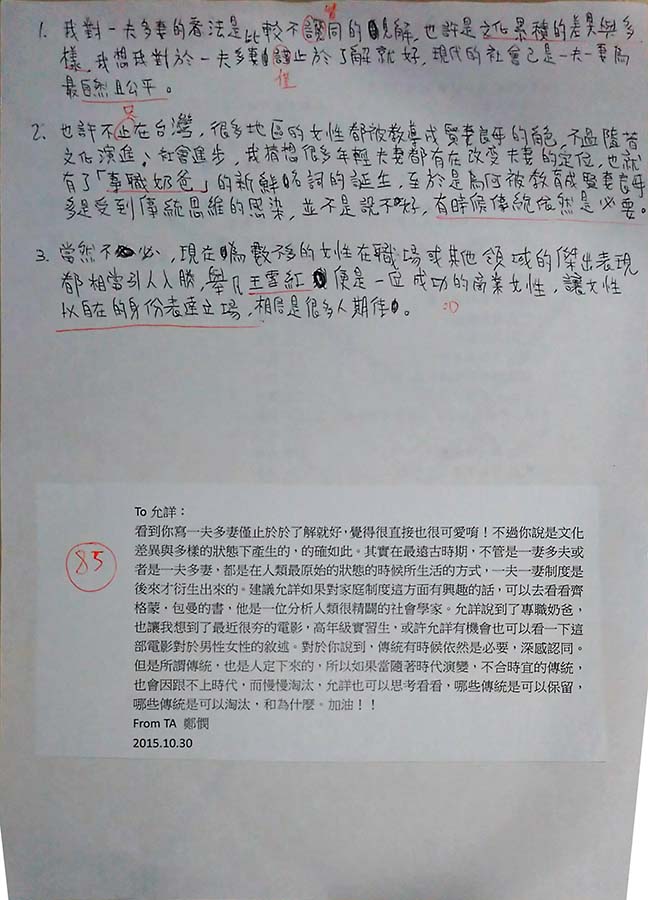 1. 我對一夫多妻的看法是比較不認同的見解，也許是文化累積的差異與多
樣，我想我對於一夫多妻僅止於了解就好，現代的社會已是一夫一妻為
最自然且公平。
2. 也許不止在台灣，很多地區的女性都被教導成賢妻良母的角色，不過隨著
只
文化演進、社會進步，我猜想很多年輕夫妻都有在改變夫妻的定位，也就
有了「專職奶爸」的新鮮名詞的誕生，至於是為何被教育成賢妻良母
多是受到傳統思維的感染，並不是說不好，有時候傳統依然是必要。
3. 當然不必，現在為數不多的女性在職場或其他領域的傑出表現
都相當引人入勝，舉凡王雪紅便是一位成功的商業女性，讓女性
以自在的身份表達立場，相信是很多人期待。 :D
85
To 允詳：
看到你寫一夫多妻僅止於於了解就好，覺得很直接也很可愛唷！不過你說是文化
差異與多樣的狀態下產生的，的確如此。其實在最遠古時期，不管是一妻多夫或
者是一夫多妻，都是在人類最原始的狀態的時候所生活的方式，一夫一妻制度是
後來才衍生出來的。建議允詳如果對家庭制度這方面有興趣的話，可以去看看齊
格蒙．包曼的書，他是一位分析人類很精闢的社會學家。允詳說到了專職奶爸，
也讓我想到了最近很夯的電影，高年級實習生，或許允詳有機會也可以看一下這
部電影對於男性女性的敘述。對於你說到，傳統有時候依然是必要，深感認同。
但是所謂傳統，也是人定下來的，所以如果當隨著時代演變，不合時宜的傳統，
也會因跟不上時代，而慢慢淘汰，允詳也可以思考看看，哪些傳統是可以保留，
哪些傳統是可以淘汰，和為什麼。加油！！
From TA 鄭憫
2015.10.30